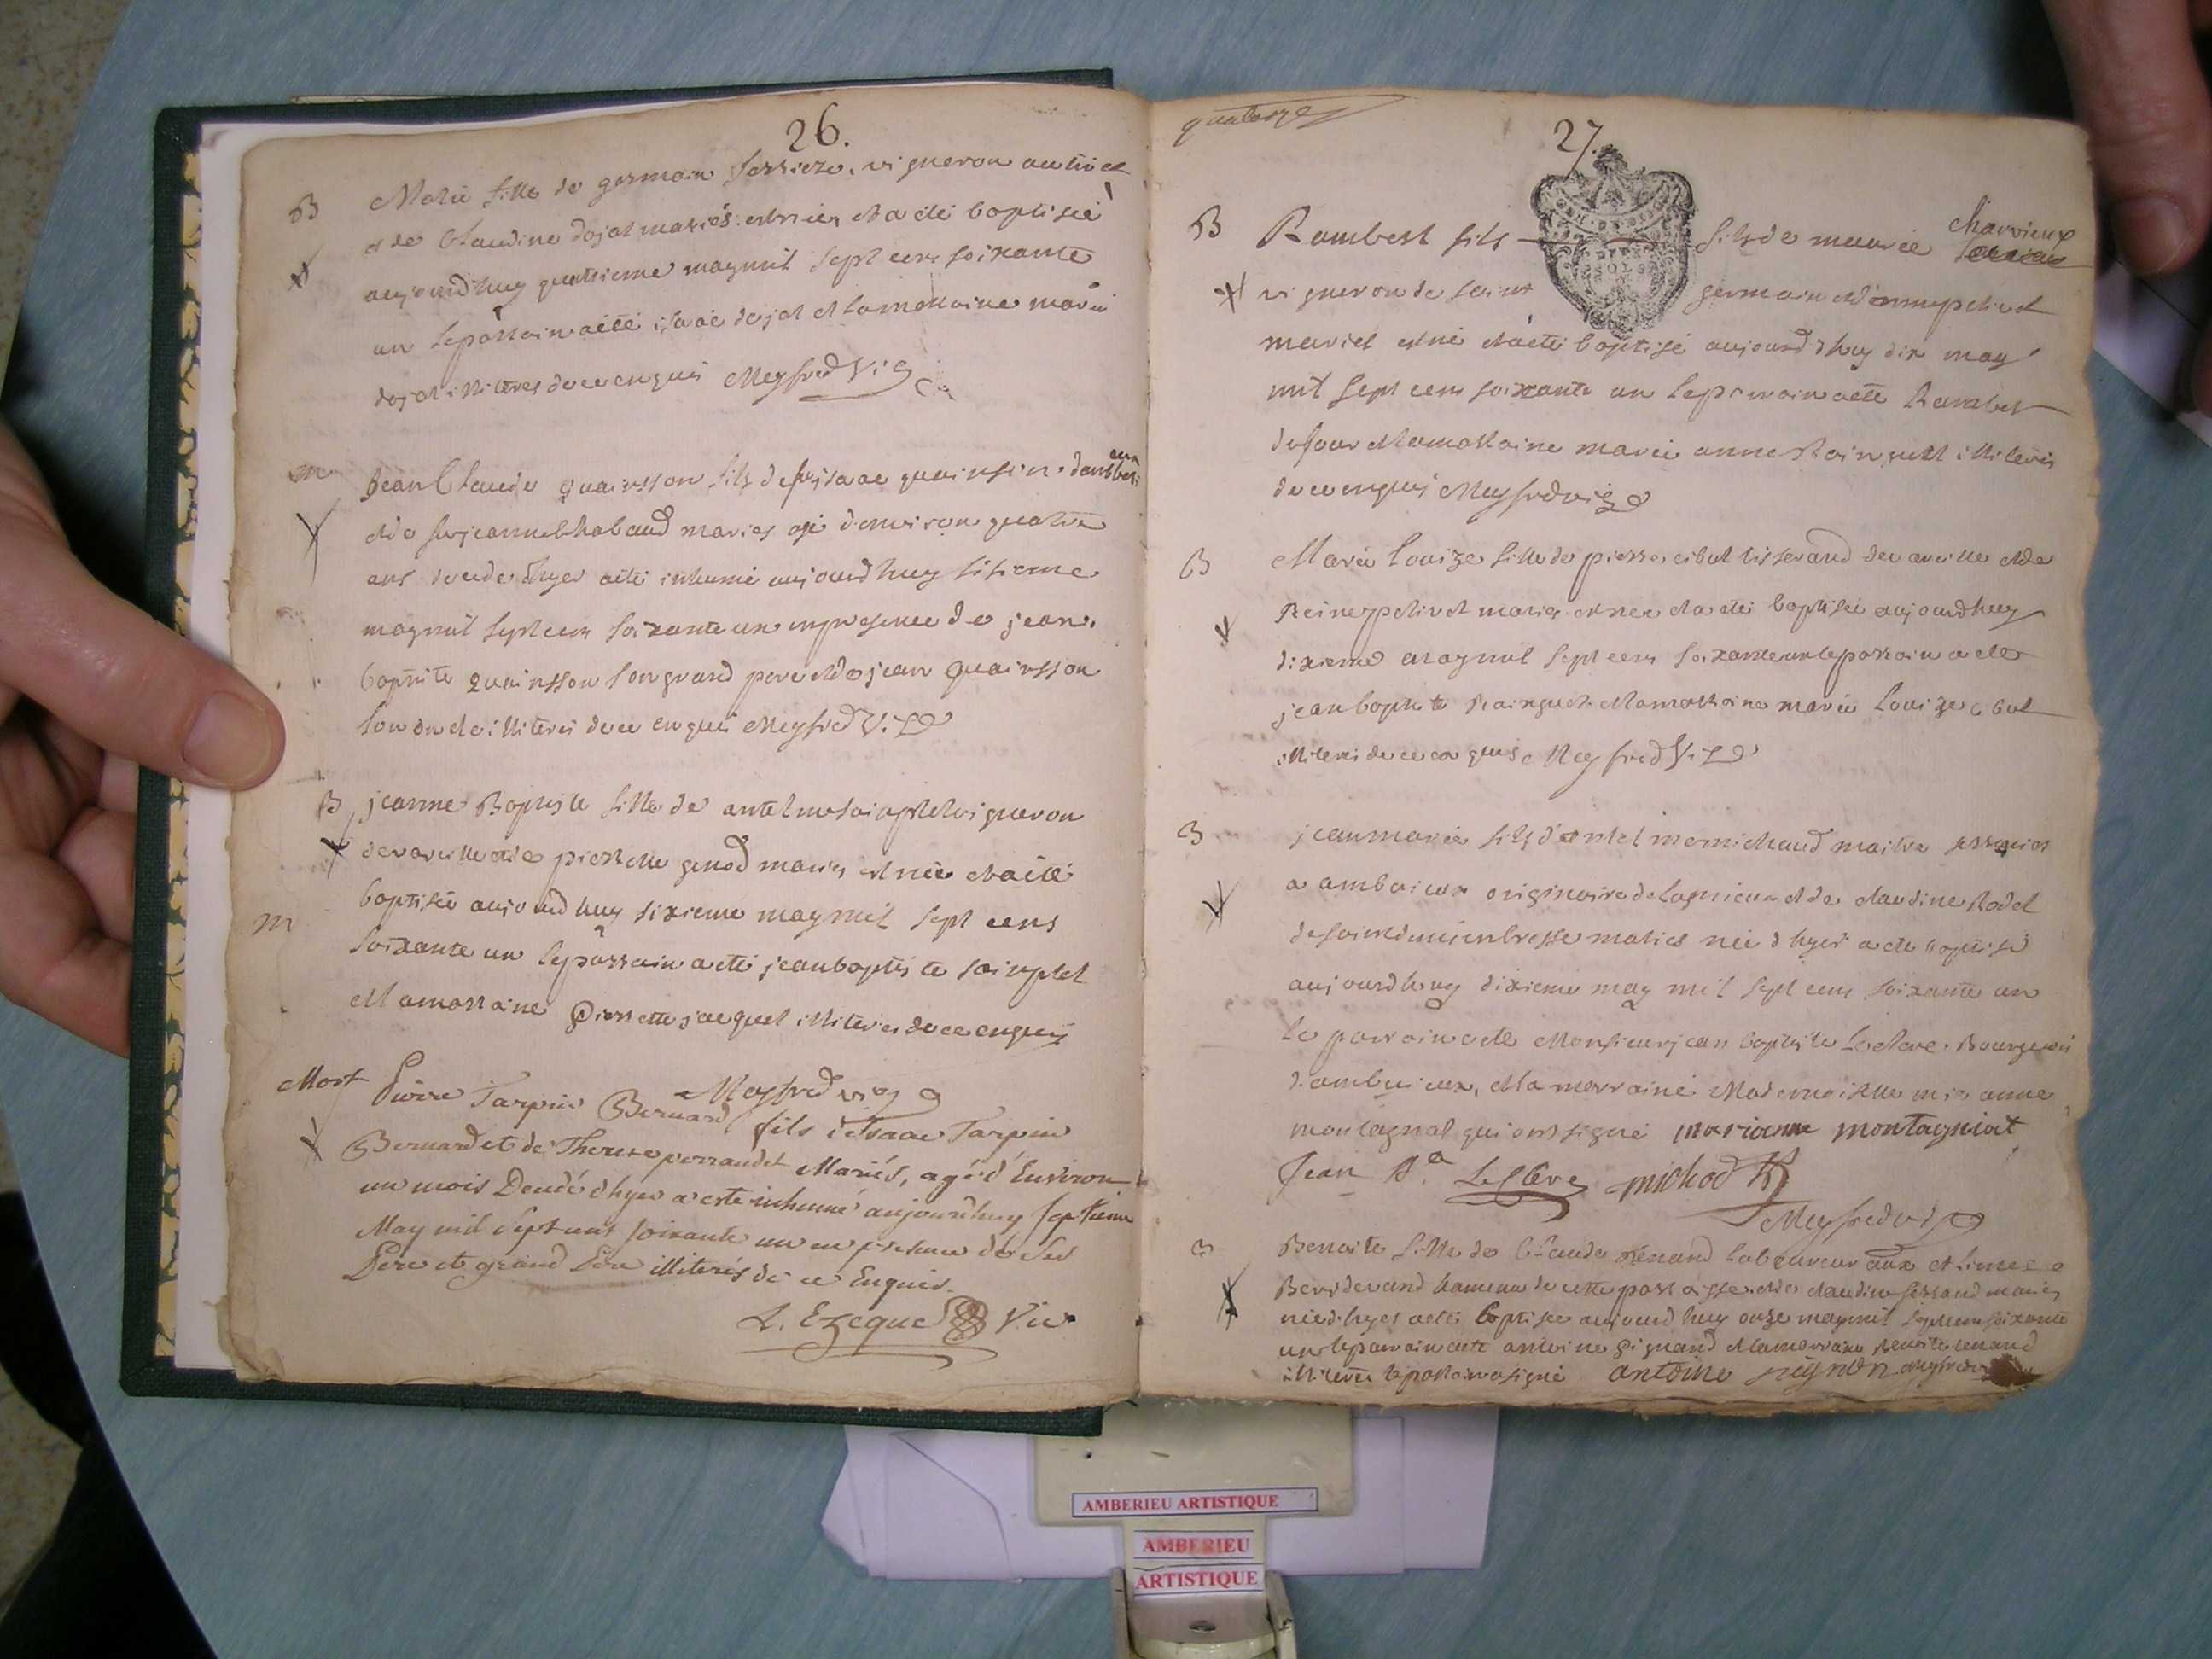 26.
B Marie fille de germain ferriere vigneron au tiret
et de Claudine dojat mariés est née et a été baptisée
aujourdhuy quatrieme may mil sept cens soixante
un le parrain a été isaac dojat et la marraine marie
dojat illiteres de ce enquis Meyfred Vic
m Jean Claude quainsson fils de fu isaac quainson dans
et de fu jeanne Chabaud mariés agé d'environ quatre
ans decedé d'hyer a été inhumé aujourdhuy sisieme
may mil sept cens soixante un en presence de jean
baptiste quainsson son grand pere et de jean quainsson
son oncle illiterés de ce enquis Meyfred Vic
B jeanne Baptiste fille de antelme sainplet vigneron
de vareille et de pierrette genod mariés est née et a été
baptisée aujourdhuy sixieme may mil sept cens
m
soixante un le parrain a été jean baptiste sainplet
et la marraine Pierrette jacquet illiteres de ce enquis
Meyfred vic
Mort Pierre Tarpin Bernard fils d'Isaac Tarpin
Bernard et de Therese perraudet Mariés, agé d'Environ
un mois Decedé d'hyer a esté inhumé aujourdhuy septieme
May mil sept cens soixante un en presence de ses
Pere et grand Pere illiterés de ce Enquis.
L. Ezeque Vic
quatorze
27.
B Rambert fils fils de marie Charvieux
vigneron de saint germain et d'anne petivet
mariés est né et a été baptisé aujourd'huy dix may
mil sept cens soixante un le parrain a été Rambert
dufour et la marraine marie anne rainguet illiterés
de ce enquis Meyfred vic
B Marie Louize fille de pierre cibut tisserand de vareille et de
Reine petivet mariés est née et a été baptisée aujourdhuy
dixieme may mil sept cens soixante un le parrain a été
jean baptiste rainguet et la marraine marie Louize cibut
illiteres de ce enquis Meyfred Vic
B jean marie fils d'antelme michaud maitre
a ambérieux originaire de lagnieu et de claudine Rodet
de saint denis en bresse mariés né d'hyer a été baptisé
aujourdhuy dixieme may mil sept cens soixante un
le parrain a été Monsieur jean baptiste Leclerc Bourgeois
d'amberieux, et la marraine Mademoiselle mariane
montagnat qui ont signé marianne montagniat
Jean Bte. Leclerc michod
Meyfred vic
B Benoite fille de Claude renand laboureur
Bevs devand hameau de cette parroisse et de claudine ferrand mariés
née d'hyer a été baptisée aujourdhuy onze may mil sept cens soixante
un le parrain a été antoine pignand et la marraine benoite renand
illiterée le parrain a signé antoine
AMBERIEU ARTISTIQUE
AMBERIEU
ARTISTIQUE